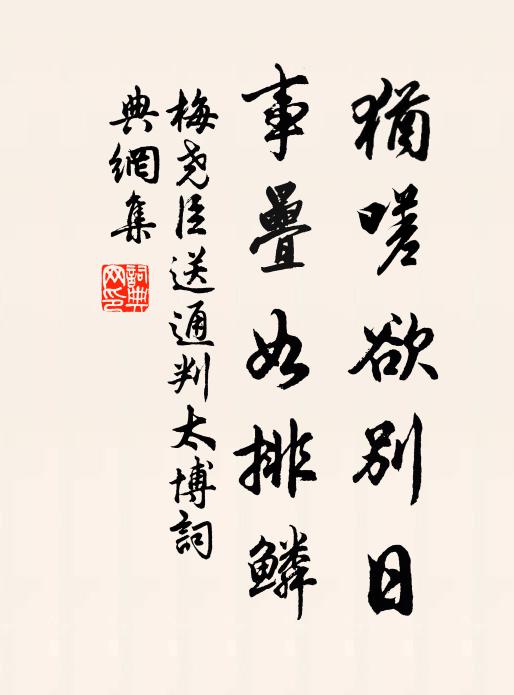 猶嗟欲別日
事疊如排鱗
梅尧臣送通判太博詞
典網集
詞典网印